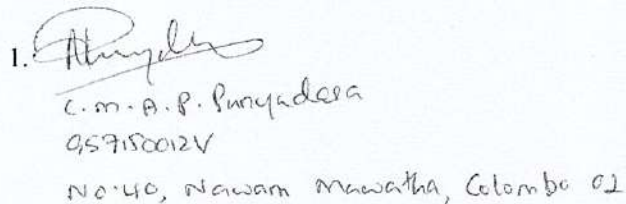 1.
C.M.A.P. Punyadasa
957150012V
No:40, Nawam Mawatha, Colombo 02